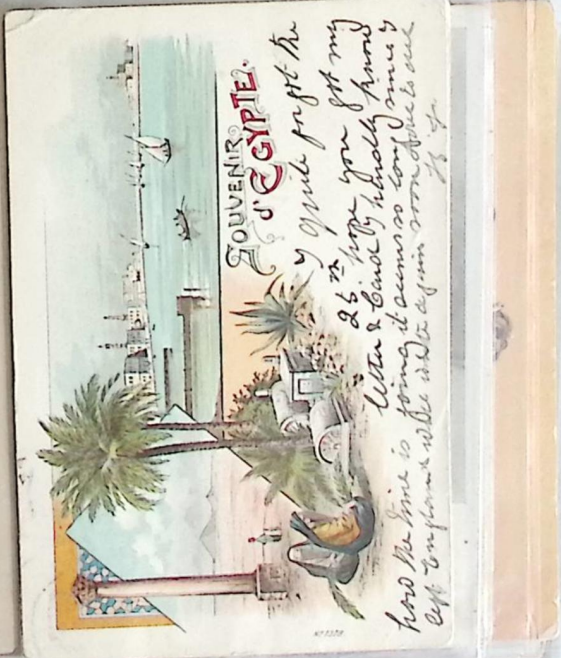 SOUVENIR
d'EGYPTE.
I quite forgot the
26th hope you got my
letter & Card by handly know
how the time is going it seems so long since I
left England while write again soon love to all